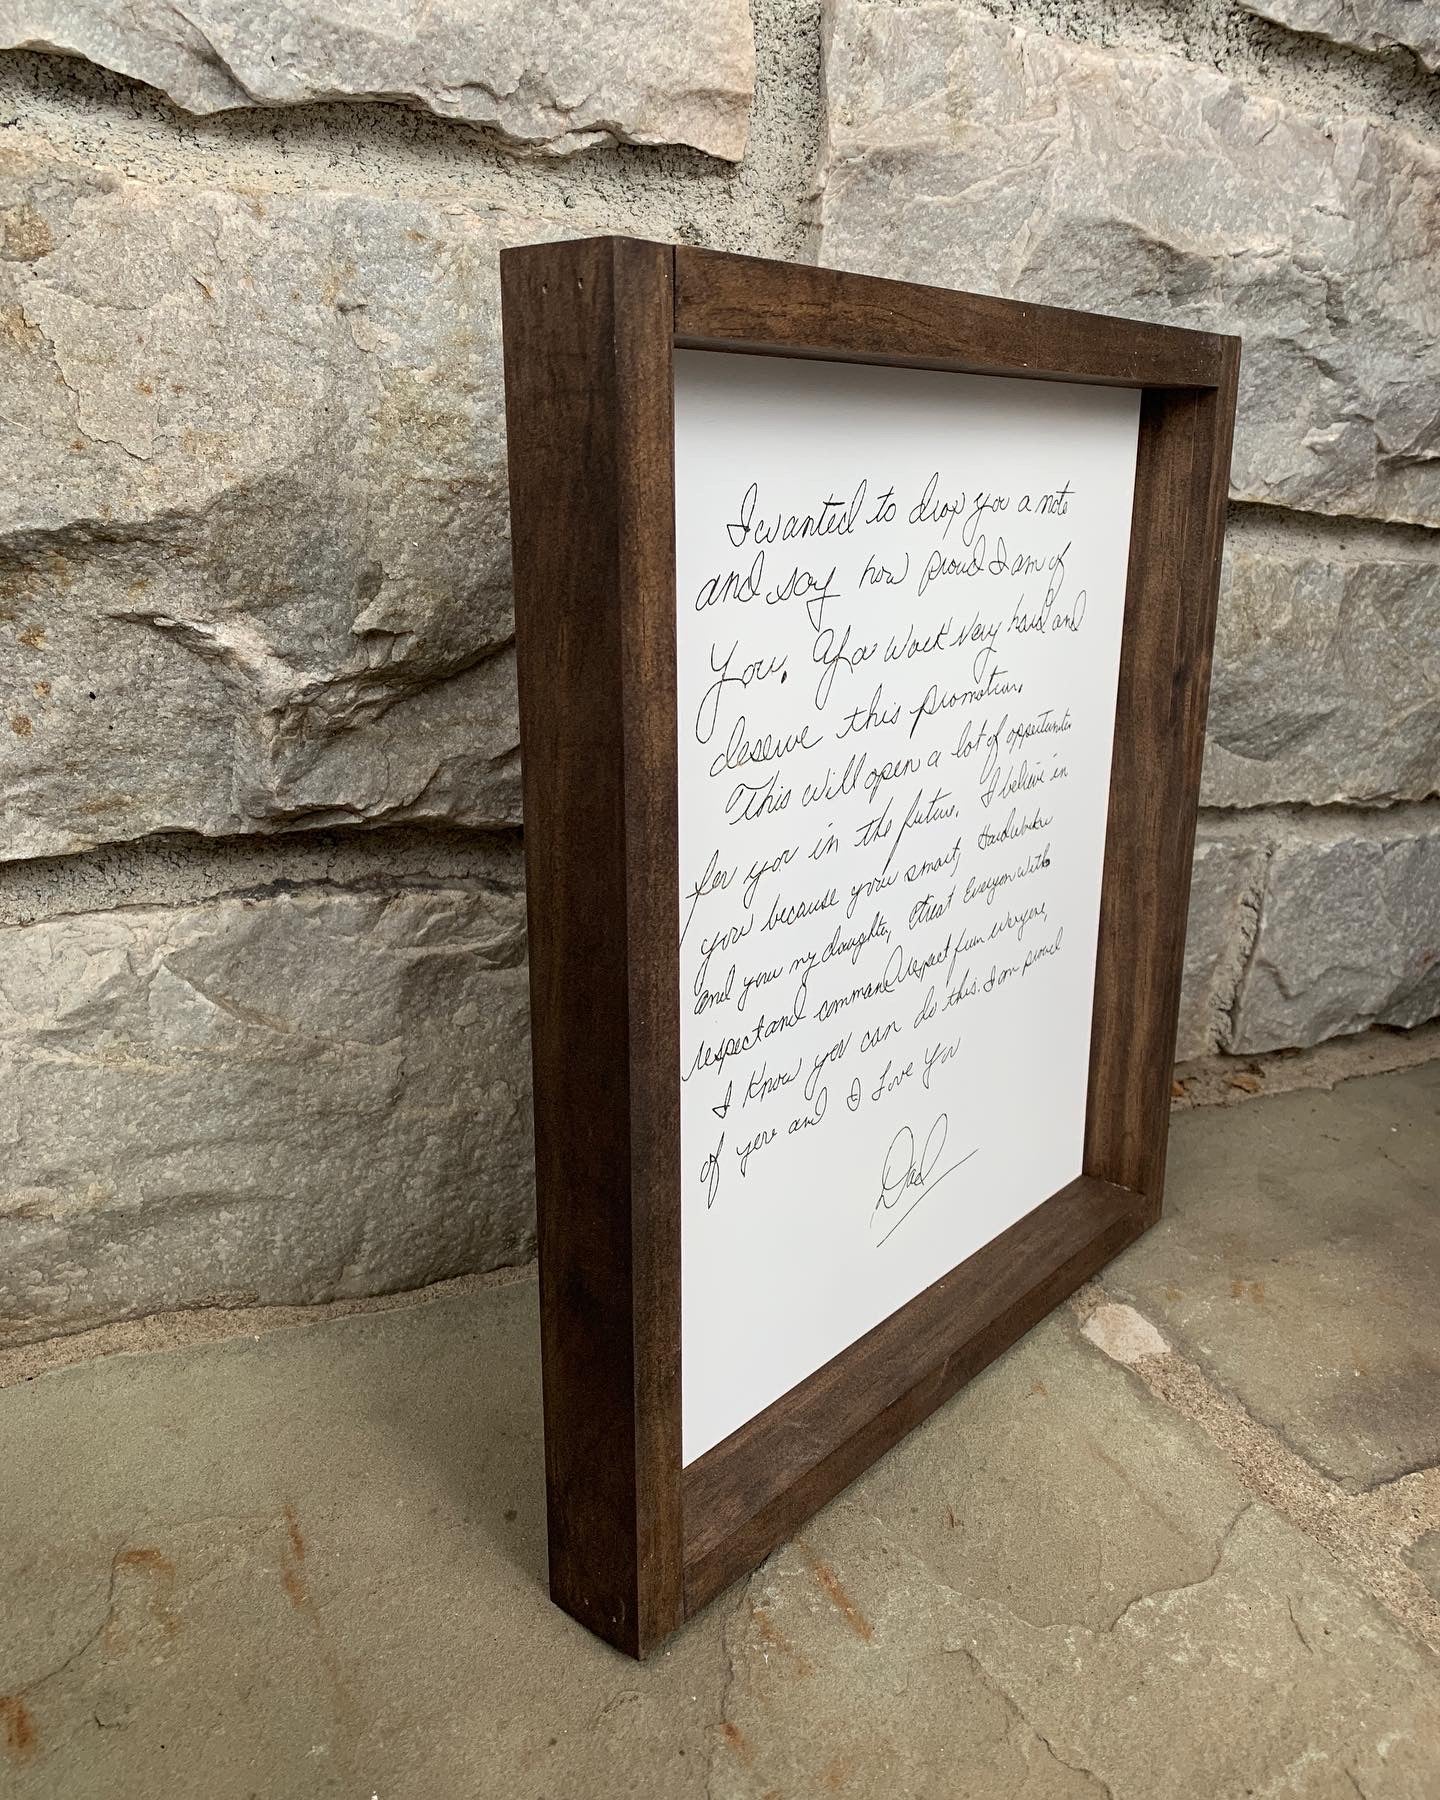 I wanted to drop you a note
and say how proud I am of
you. You work very hard and
deserve this promotion.
This will open a lot of opportunities
for you in the future. I believe in
you because your smart, Hardworker
and your my daughter, treat Everyone with
respect and command respect from everyone,
I know you can do this. I am proud
of you and I Love You
Dad